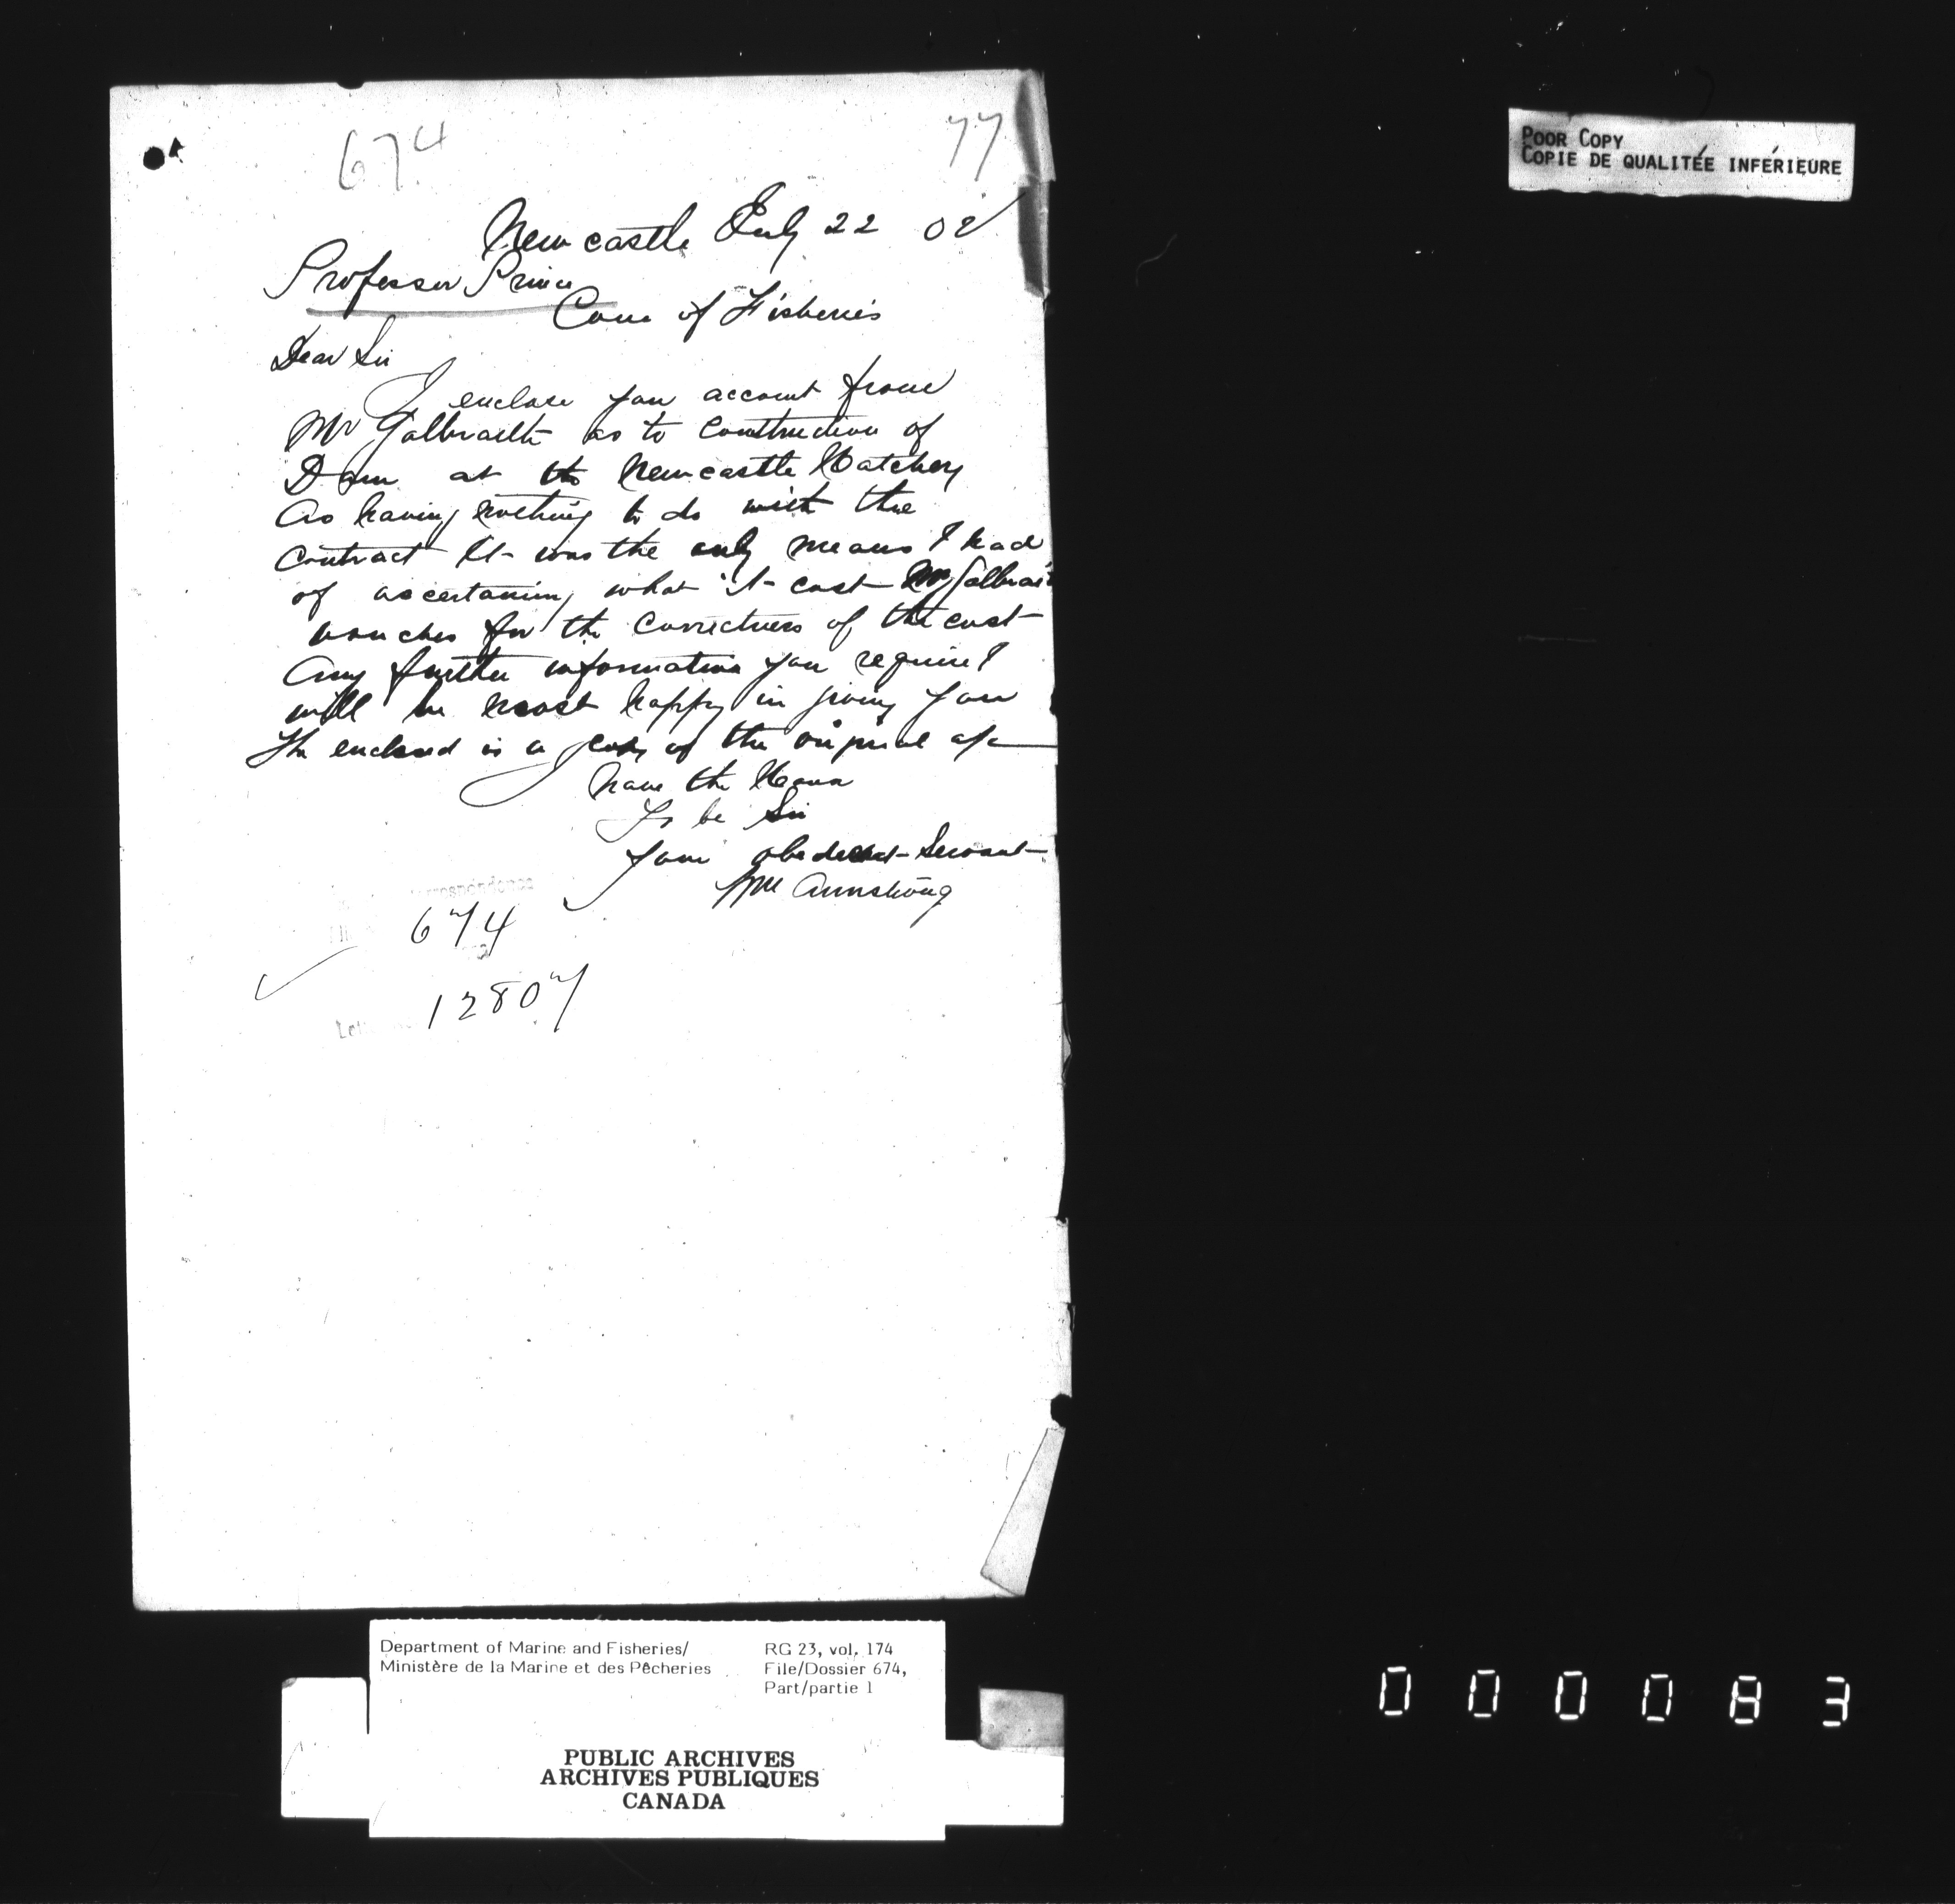 674
77
POOR COPY
COPIE DE QUALITÉE INFÉRIEURE
Newcastle July 22 02
Professor Prince
Com of Fisheries
Dear Sir
I enclose you account from
Mr Galbraith as to construction of
Dam at the Newcastle Hatchery
As having nothing to do with the
contract It was the only means I had
of ascertaining what it cost Mr Galbrai
vouches for the correctness of the cost
Any further information you require I
will be most happy in giving you
The enclosed is a copy of the original a/c
I have the Honor
To be Sir
Your obedient Servant
Wm Armstrong
rrespondence
674
12807
Department of Marine and Fisheries/
Ministère de la Marine et des Pêcheries
RG 23, vol. 174
File/Dossier 674,
Part/partie 1
PUBLIC ARCHIVES
ARCHIVES PUBLIQUES
CANADA
000083